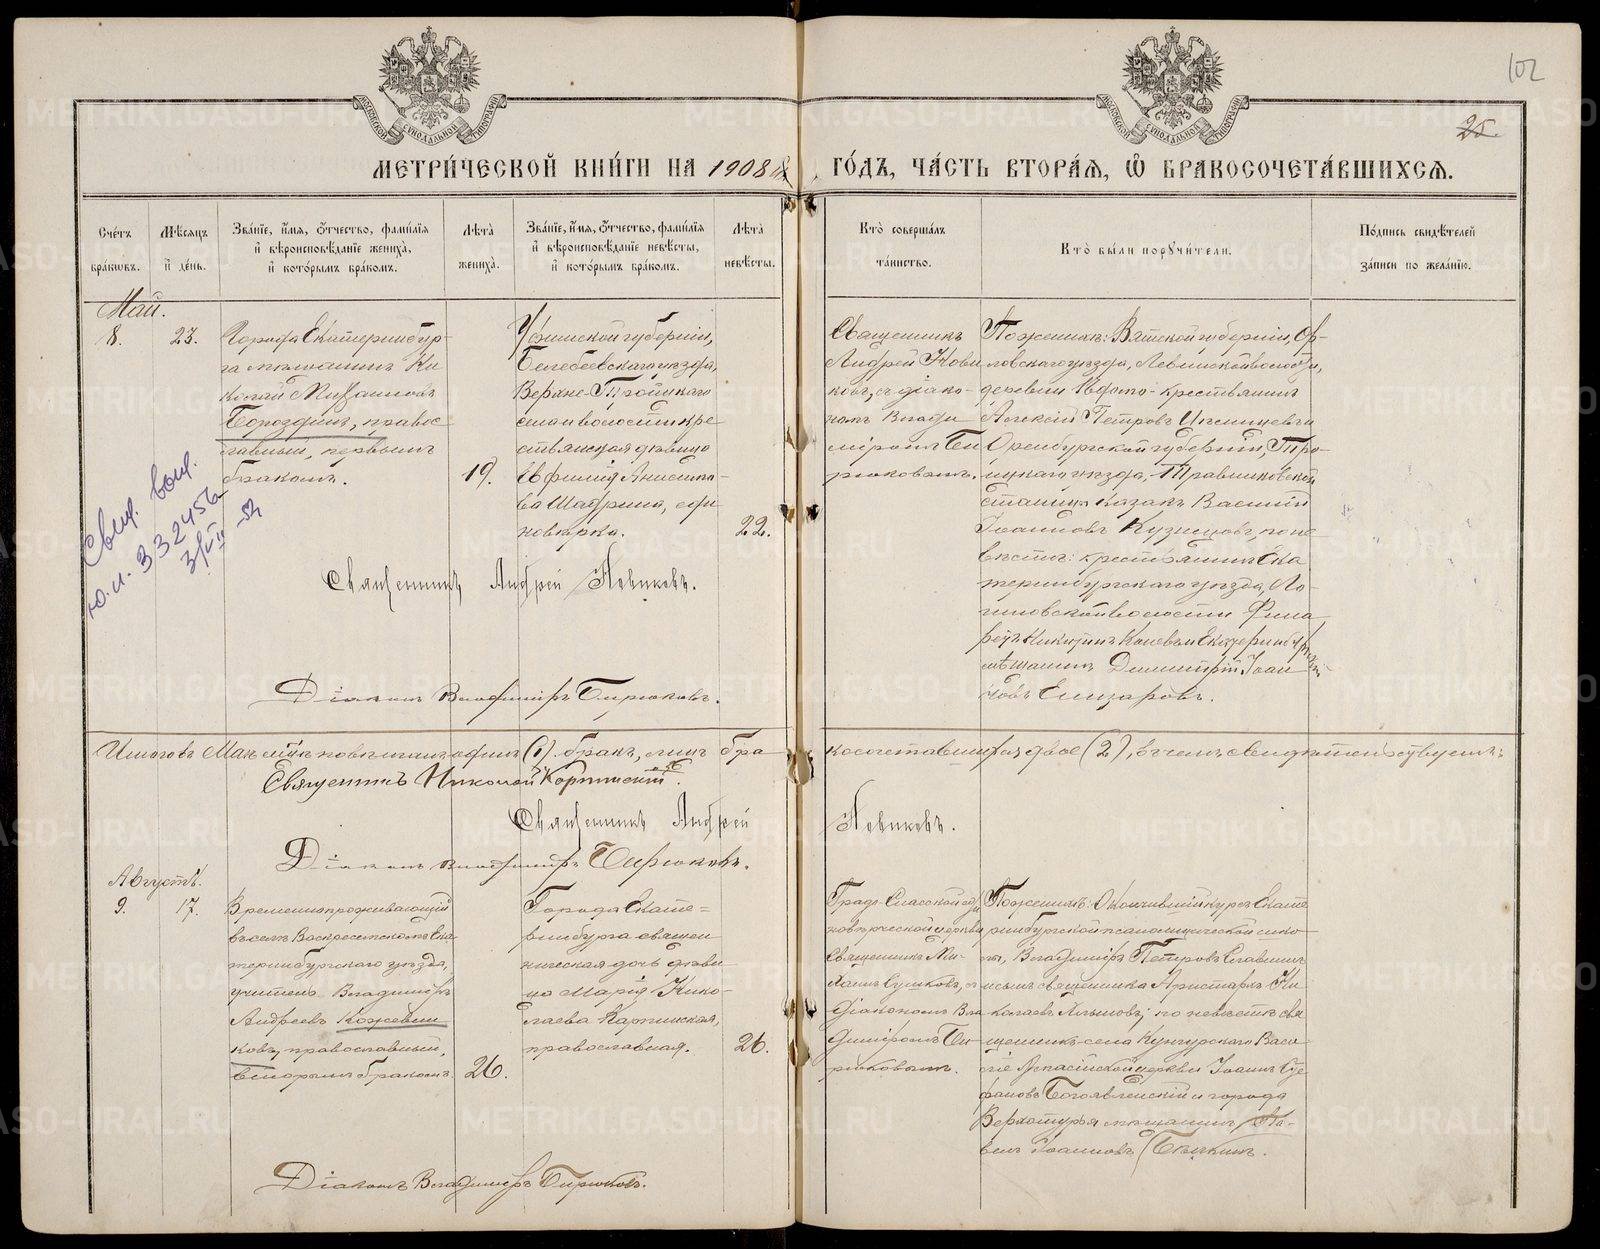 102
25.
МЕТРИЧЕСКОЙ КНИГИ НА 1908 й ГОДЪ, ЧАСТЬ ВТОРАЯ, Ѡ БРАКОСОЧЕТАВШИХСЯ.
Счетъ браковъ.
Мѣсяцъ и день.
Званіе, имя, отчество, фамилія и вѣроисповѣданіе жениха, и которымъ бракомъ.
Лѣта жениха.
Званіе, имя, отчество, фамилія и вѣроисповѣданіе невѣсты, и которымъ бракомъ.
Лѣта невѣсты.
Кто совершалъ таинство.
Кто были поручители.
Подпись свидѣтелей записи по желанію.
Май.
8.
23.
Города Екатеринбур-
га мѣщанинъ Ни-
колай Михаиловъ
Бороздинъ, правос-
лавный, первымъ
бракомъ.
19.
Уфимской губерніи,
Белебеевскаго уѣзда,
Верхне-Троицкаго
села и волости кре-
стьянская дѣвица
Евфимія Анисимо-
ва Шабрина, еди-
новѣрка.
22.
Священникъ
Андрей Нови-
ковъ, съ діако-
номъ Влади-
міромъ Би-
рюковымъ.
По женихѣ: Вятской губерніи, Ор-
ловскаго уѣзда, Левинской волости,
деревни
крестьянинъ
Алексій Петровъ
и
Оренбургской губерніи, Тро-
ицкаго уѣзда, Травниковской
станицы казакъ Василій
Іоанновъ Кузнецовъ, по не-
вѣстѣ: крестьянинъ Ека-
теринбургскаго уѣзда, Ло-
гиновской волости Фила-
ретъ Никитинъ Коневъ и Екатеринбургскій
мѣщанинъ Димитрій Іоан-
новъ Елизаровъ.
Свид. выд.
ю.и. 332456
3/VII-52
Священникъ Андрей Новиковъ.
Діаконъ Владиміръ Бирюковъ.
Итого въ Маѣ мѣсяцѣ повѣнчанъ одинъ (1) бракъ, лицъ бра-
косочетавшихся двое (2), въ чемъ свидѣтельствуемъ:
Священникъ Николай Карпинскій.
Священникъ Андрей Новиковъ.
Діаконъ Владиміръ Бирюковъ.
Августъ.
9.
17.
Временно проживающій
въ селѣ Воскресенскомъ Ека-
теринбургскаго уѣзда,
учитель Владиміръ
Андреевъ Кожевни-
ковъ, православный,
вторымъ бракомъ.
26.
Города Екате-
ринбурга священ-
ническая дочь дѣви-
ца Марія Нико-
лаева Карпинская,
православная.
26.
Градо-Спасской еди-
новѣрческой церкви
Священникъ Ми-
хаилъ Сушковъ, съ
діакономъ Вла-
диміромъ Би-
рюковымъ.
По женихѣ: Окончившій курсъ Екате-
ринбургской псаломщической шко-
лы, Владиміръ Петровъ Славнинъ
и сынъ священника Аристархъ Ни-
колаевъ Хлыновъ; по невѣстѣ свя-
щенникъ села Кунгурскаго Васи-
ліе Аѳанасіевской церкви Іоаннъ Сте-
фановъ Богоявленскій и города
Верхотурья мѣщанинъ Па-
велъ Іоанновъ Бѣлкинъ.
Діаконъ Владиміръ Бирюковъ.
METRIKI.GASO-URAL.RU